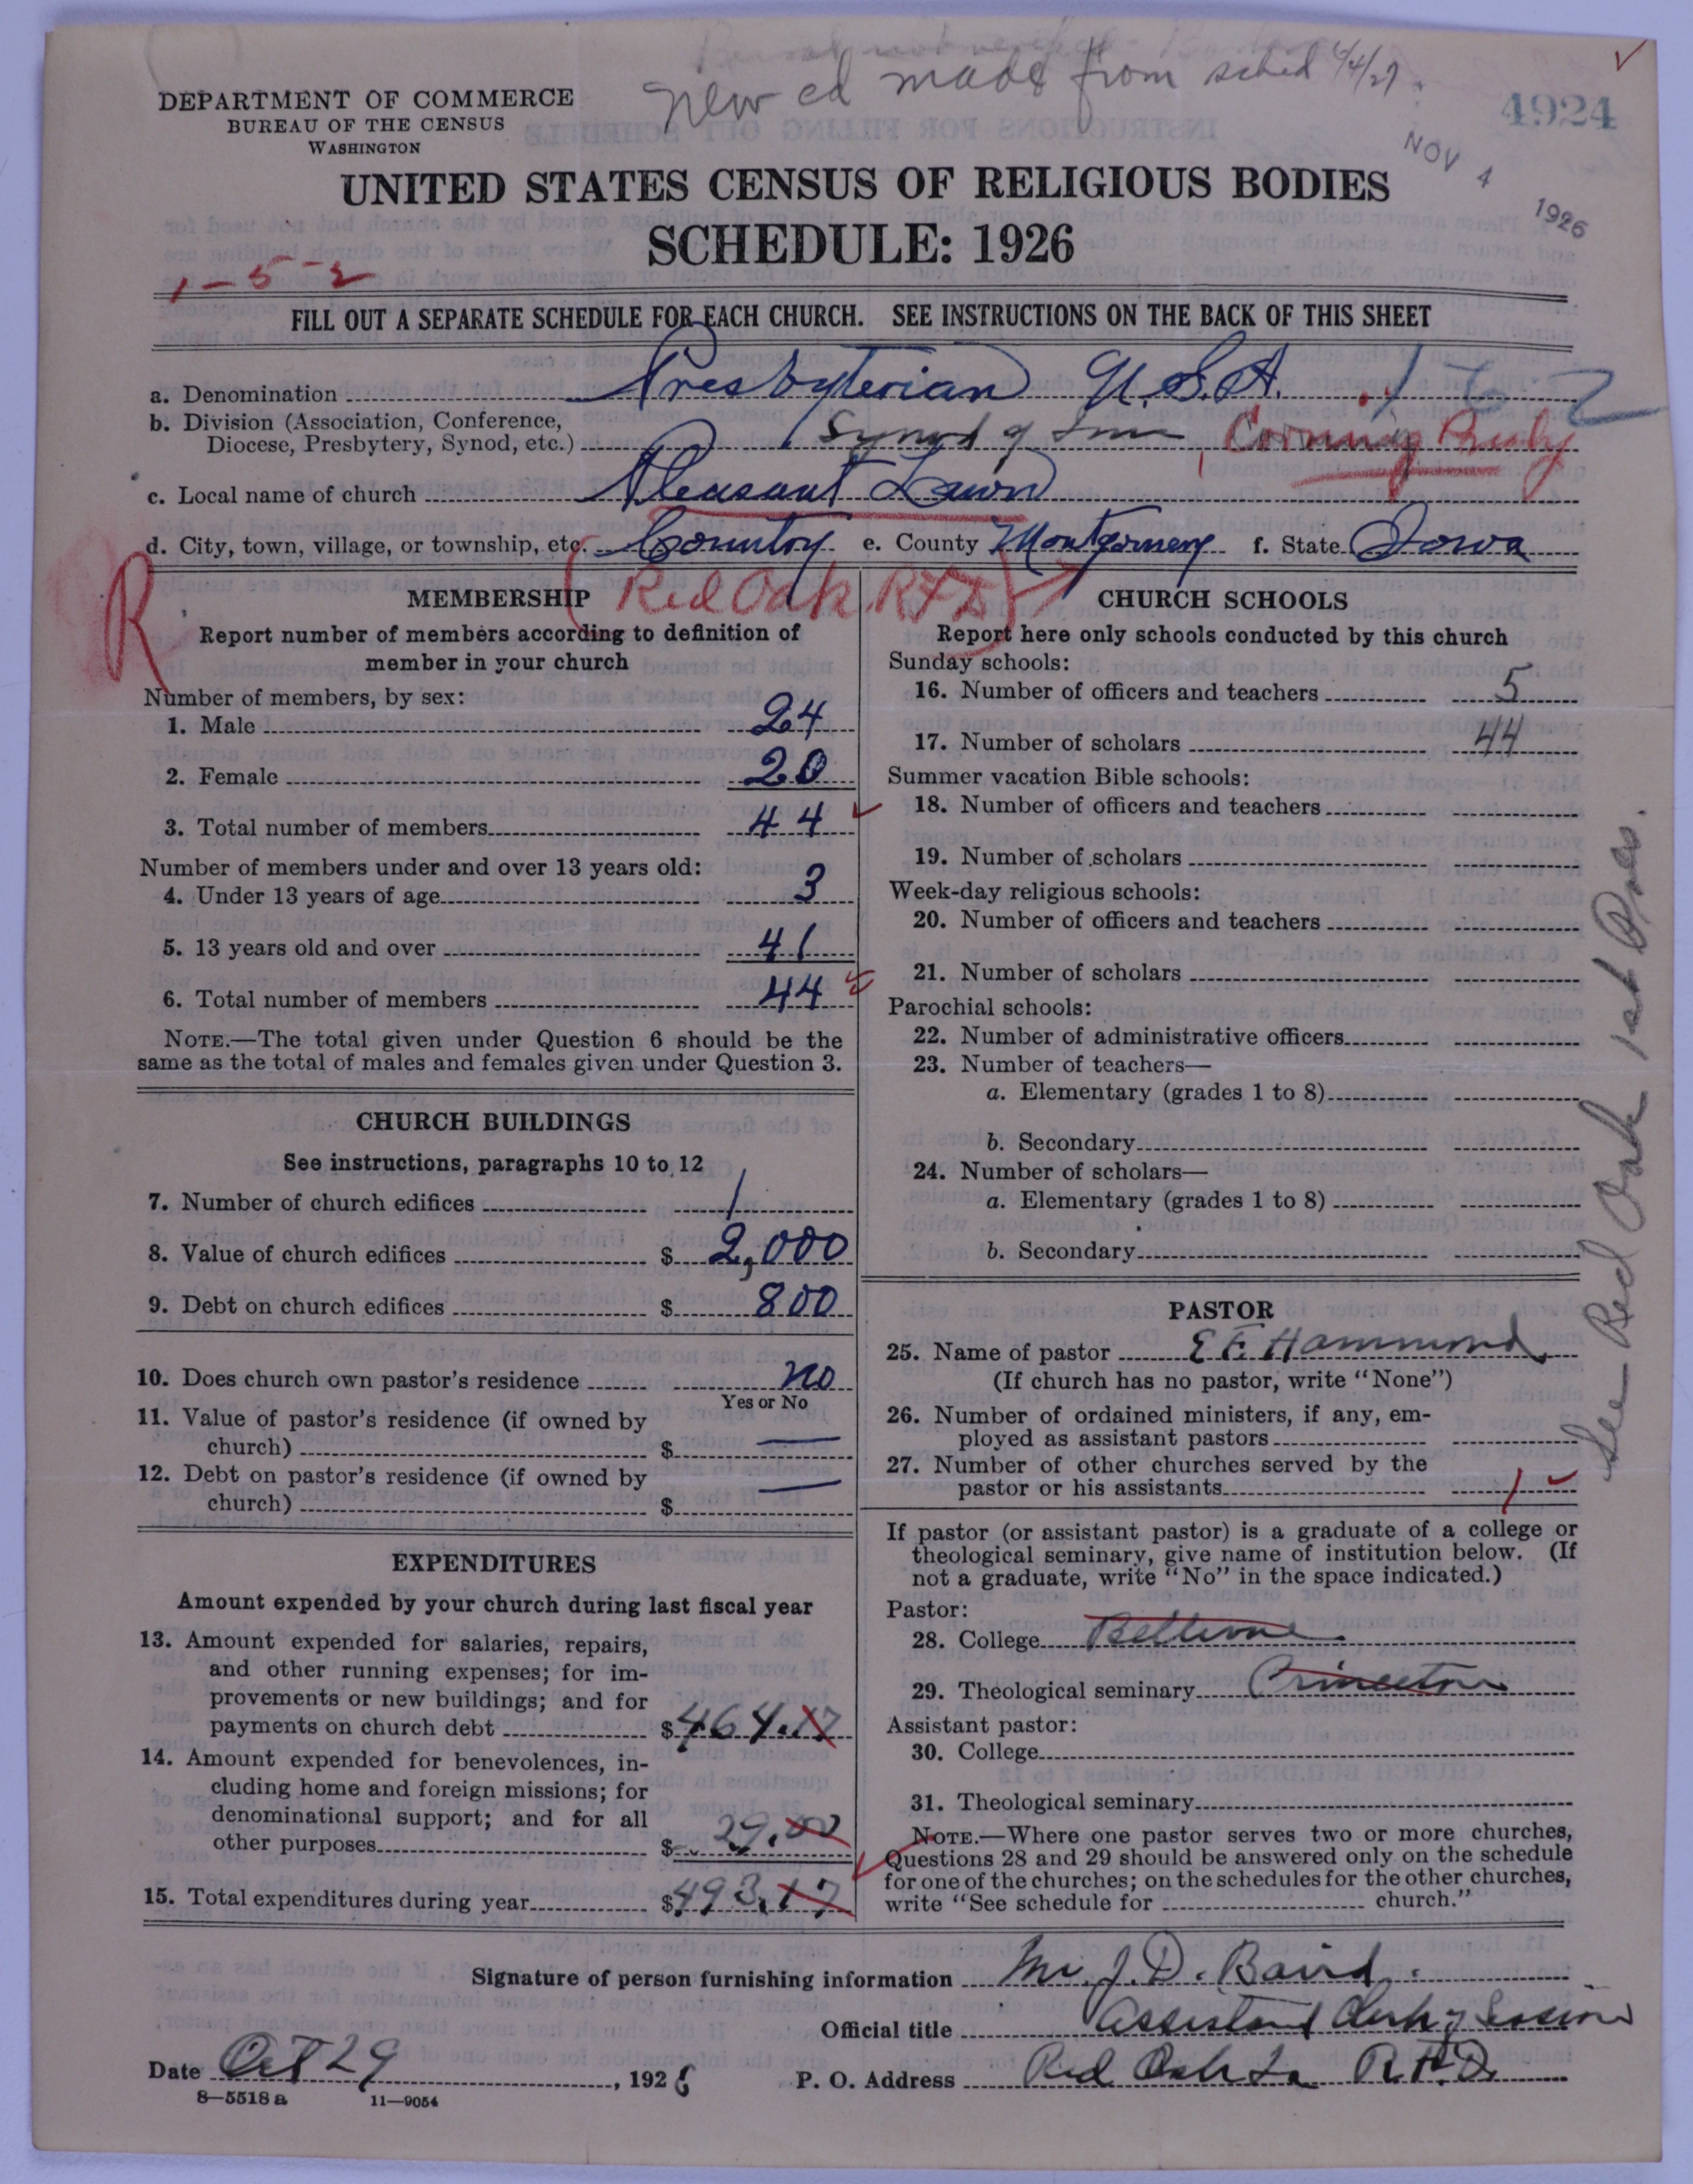 New cd made from sched 6/4/27.
DEPARTMENT OF COMMERCE
BUREAU OF THE CENSUS
WASHINGTON
4924
NOV 4 1926
UNITED STATES CENSUS OF RELIGIOUS BODIES
SCHEDULE: 1926
1-5-2
FILL OUT A SEPARATE SCHEDULE FOR EACH CHURCH. SEE INSTRUCTIONS ON THE BACK OF THIS SHEET
a. Denomination Presbyterian U.S.A.
b. Division (Association, Conference,
Diocese, Presbytery, Synod, etc.) Synod of Corning Presby
c. Local name of church Pleasant Lawn
d. City, town, village, or township, etc. Country e. County Montgomery f. State Iowa
R
(Red Oak, RFD)
MEMBERSHIP
Report number of members according to definition of
member in your church
Number of members, by sex:
1. Male 24
2. Female 20
3. Total number of members 44
Number of members under and over 13 years old:
4. Under 13 years of age 3
5. 13 years old and over 41
6. Total number of members 44
NOTE.—The total given under Question 6 should be the
same as the total of males and females given under Question 3.
CHURCH BUILDINGS
See instructions, paragraphs 10 to 12
7. Number of church edifices 1
8. Value of church edifices $ 2,000
9. Debt on church edifices $ 800
10. Does church own pastor's residence no
Yes or No
11. Value of pastor's residence (if owned by
church) $ —
12. Debt on pastor's residence (if owned by
church) $ —
EXPENDITURES
Amount expended by your church during last fiscal year
13. Amount expended for salaries, repairs,
and other running expenses; for im-
provements or new buildings; and for
payments on church debt $ 464.17
14. Amount expended for benevolences, in-
cluding home and foreign missions; for
denominational support; and for all
other purposes $ 29.00
15. Total expenditures during year $ 493.17
CHURCH SCHOOLS
Report here only schools conducted by this church
Sunday schools:
16. Number of officers and teachers 5
17. Number of scholars 44
Summer vacation Bible schools:
18. Number of officers and teachers
19. Number of scholars
Week-day religious schools:
20. Number of officers and teachers
21. Number of scholars
Parochial schools:
22. Number of administrative officers
23. Number of teachers—
a. Elementary (grades 1 to 8)
b. Secondary
24. Number of scholars—
a. Elementary (grades 1 to 8)
b. Secondary
PASTOR
25. Name of pastor E F Hammond
(If church has no pastor, write "None")
26. Number of ordained ministers, if any, em-
ployed as assistant pastors
27. Number of other churches served by the
pastor or his assistants 1
If pastor (or assistant pastor) is a graduate of a college or
theological seminary, give name of institution below. (If
not a graduate, write "No" in the space indicated.)
Pastor:
28. College Bellevue
29. Theological seminary Princeton
Assistant pastor:
30. College
31. Theological seminary
NOTE.—Where one pastor serves two or more churches,
Questions 28 and 29 should be answered only on the schedule
for one of the churches; on the schedules for the other churches,
write "See schedule for church."
See Red Oak 1st Pres.
Signature of person furnishing information Mr. J. D. Baird.
Official title Assistant Clerk of Session
Date Oct 29, 1926 P. O. Address Red Oak Ia R.F.D.
8—5518 a 11—9054